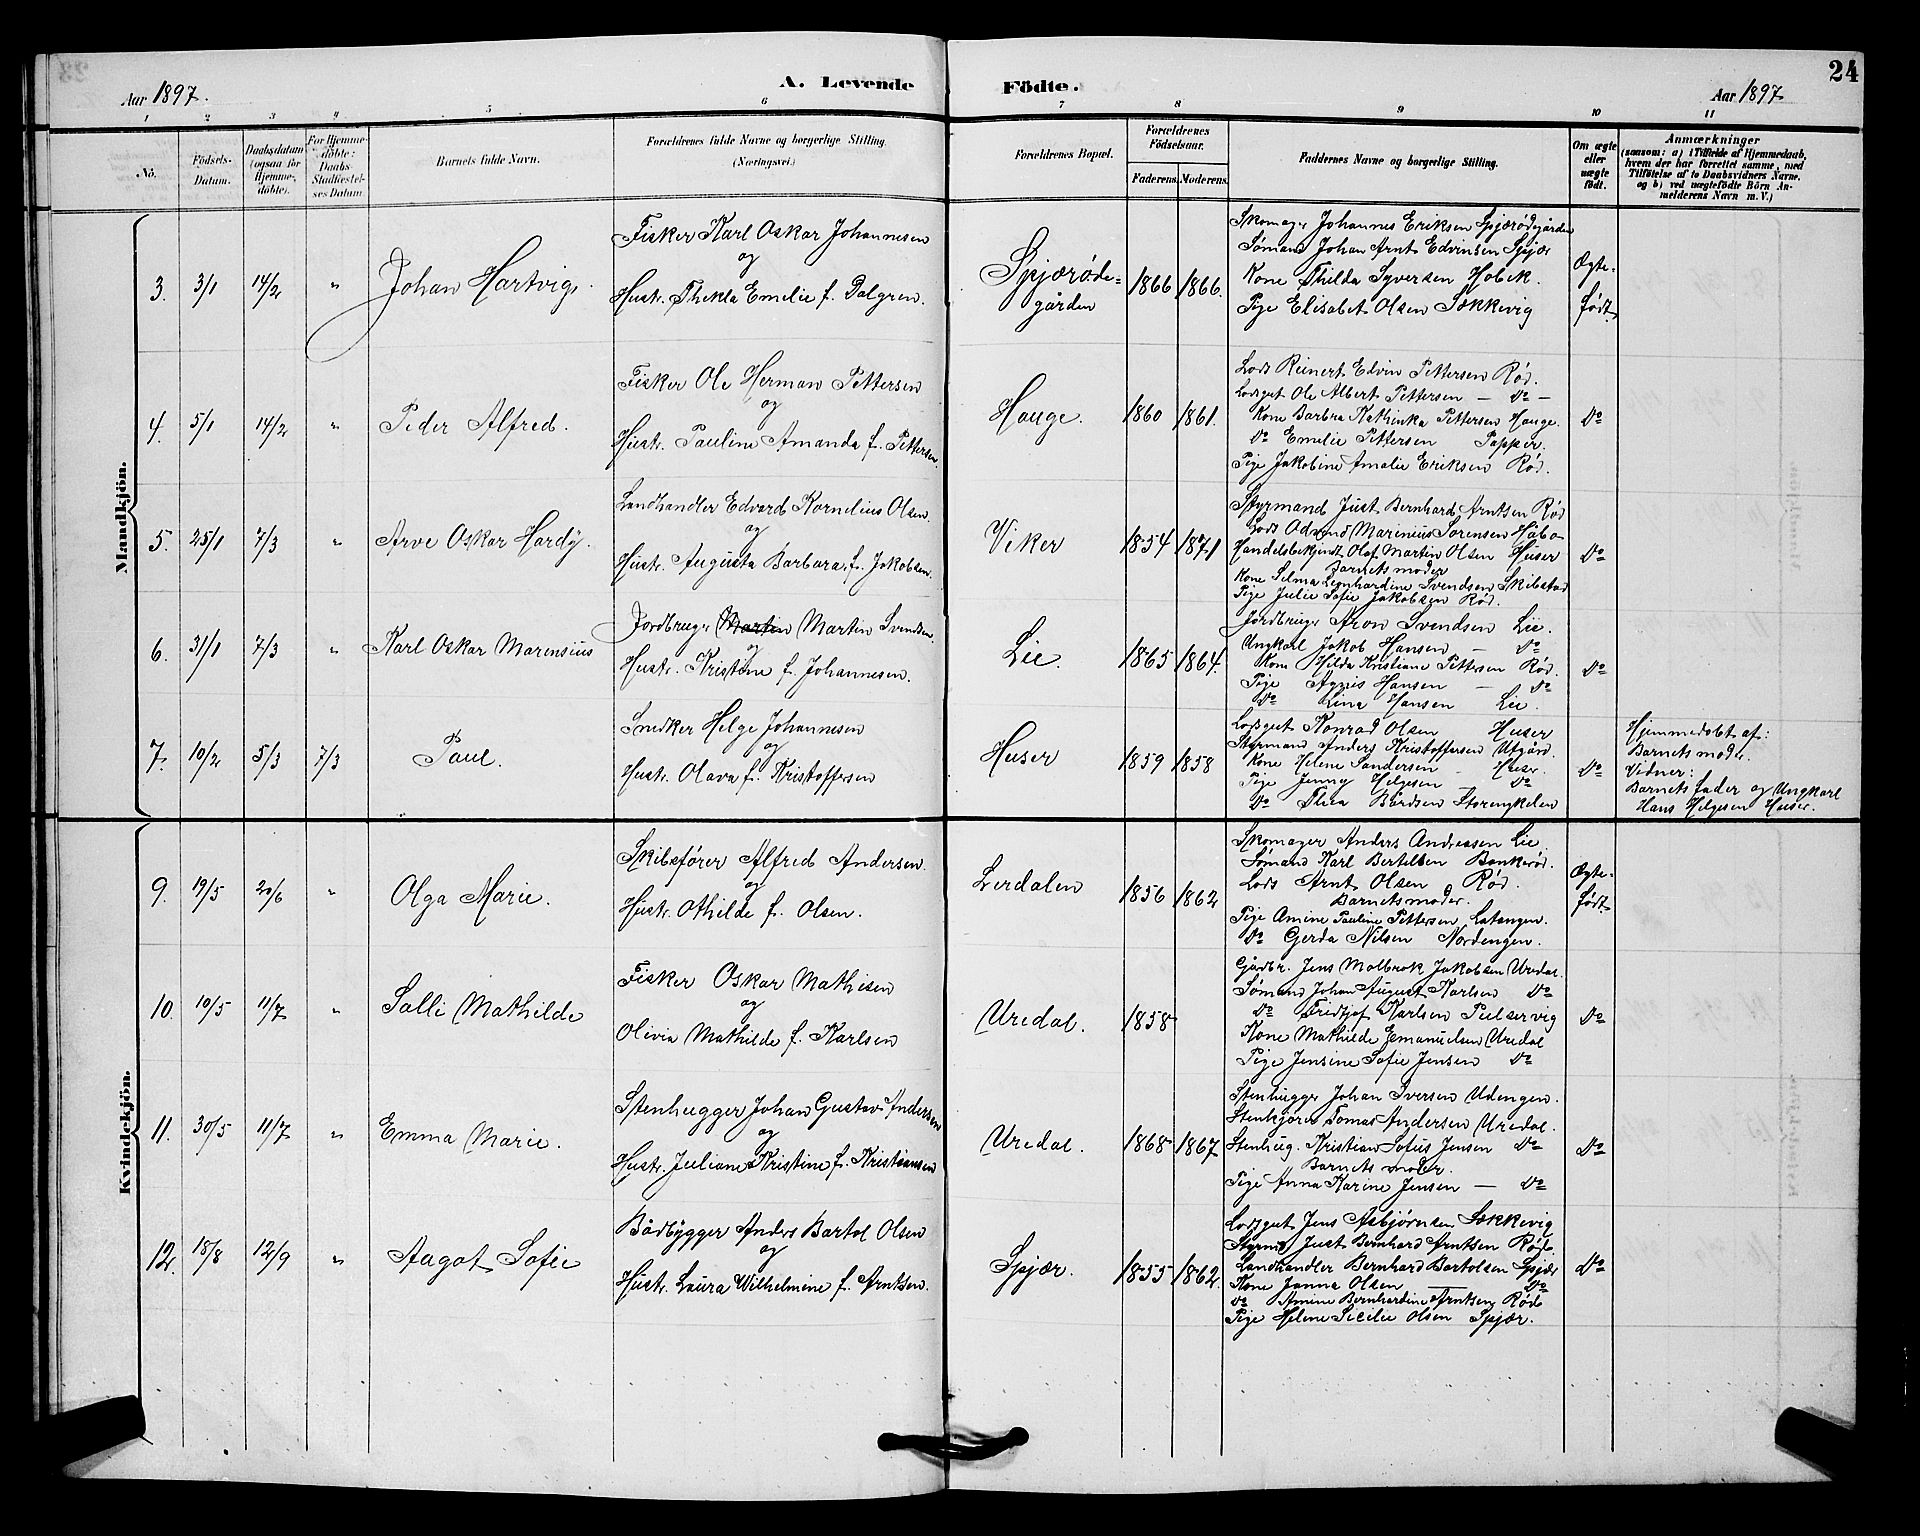 24
Aar 1897.
A. Levende
Födte.
Aar 1897
1 2 3 4 5 6 7 8 9 10 11
No.
Födsels-Datum.
Daabsdatum (ogsaa for Hjemme-döbte).
For Hjemme-döbte: Daabs-Stadfæstel-ses Datum
Barnets fulde Navn.
Forældrenes fulde Navne og borgerlige Stilling. (Næringsvei.)
Forældrenes Bopæl.
Forældrenes Födselsaar.
Faderens. Moderens.
Faddernes Navne og borgerlige Stilling.
Om ægte eller uægte födt.
Anmærkninger
(saasom: a) i Tilfælde af Hjemmedaab,
hvem der har forrettet samme, med
Tilföielse af to Daabsvidners Navne,
og b) ved uægtefödte Börn An-
melderens Navn m. V.)
Mandkjön.
3. 3/1 14/2 "
Johan Hartvig.
Fisker Karl Oskar Johannesen
og
Hustr. Thekla Emelie f. Dalgren.
Spjærøds-
gården
1866 1866.
Skomager Johannes Eriksen Spjærødsgården
Sømand Johan Arnt Edvinsen Spjær
Kone Thilda Syversen Habek.
Pige Elisabet Olsen Søkkevig
Ægte-
født.
4. 5/1 14/2 "
Peder Alfred.
Fisker Ole Herman Pettersen
og
Hustr. Pauline Amanda f. Pettersen.
Hauge.
1860 1861.
Lods Reinert Edvin Pettersen Rød.
Lodsgut Ole Albert Pettersen — Do —
Kone Barbra Kathinka Pettersen Hauge.
Do Emelie Pettersen Papper.
Pige Jakobine Amalie Eriksen Rød.
Do
5. 25/1 7/3 "
Arve Oskar Hardy.
Landhandler Edvard Kornelius Olsen.
og
Hustr. Augusta Barbara, f. Jakobsen.
Viker
1854 1871
Styrmand Just Bernhard Arntsen Rød
Lods Odmnd Marinius Sørensen Håbo
Handelsbetjent Olaf Martin Olsen Huser
Barnets moder
Kone Selma Leonhardine Svendsen Skibstad
Pige Julie Sofie Jakobsen Rød.
Do
6. 31/1 7/3 "
Karl Oskar Marensius
Jordbruger Martin Martin Svendsen.
og
Hustr. Kristine f. Johannesen.
Lie.
1865 1864.
Jordbruger Aron Svendsen Lie.
Ungkarl Jakob Hansen — Do
Kone Hilda Kristiane Pettersen Rød.
Pige Agnis Hansen — Do
Do Lina Hansen Lie.
Do
7. 10/2 5/3 7/3
Paul.
Snedker Helge Johannesen
og
Hustr. Olava f. Kristoffersen
Huser
1859 1858
Lodsgut Konrad Olsen Huser
Styrmand Anders Kristoffersen Utgård.
Kone Helene Sandersen — Huser.
Pige Jenny Helgesen — Do
Do Thea Bårdsen Storengkelen
Do
Hjemmedøbt af:
Barnets moder.
Vidner:
Barnets fader og Ungkarl
Hans Helgesen Huser.
Kvindekjön.
9. 19/5 20/6 "
Olga Marie.
Skibsfører Alfred Andersen.
og
Hustr. Othilde f. Olsen.
Lerdalen
1856 1862
Skomager Anders Andreasen Lie
Sømand Karl Bertelsen Bankerød.
Lods Arnt Olsen Rød.
Barnets moder.
Pige Amine Pauline Pettersen Løtangen.
Do Gerda Nilsen Nordengen.
Ægte-
født.
10. 10/5 11/7 "
Salli Mathilde
Fisker Oskar Mathisen
og
Olivia Mathilde f. Karlsen
Uredal.
1858
Gårdbr. Jens Molbrok Jakobsen Uredal.
Sømand Johan August Karlsen Do
Do Fredtjof Karlsen Pulservig
Kone Mathilde Emanuelsen Uredal
Pige Jensine Sofie Jensen Do
Do
11. 30/5 11/7 "
Emma Marie.
Stenhugger Johan Gustav Andersen
og
Hustr. Juliane Kristine f. Kristiansen
Uredal.
1868 1867
Stenhugger Johan Iversen Udengen.
Stenkjører Tomas Andersen Uredal.
Stenhug. Kristian Sofus Jensen Do
Barnets moder.
Pige Anna Karine Jensen — Do
Do
12. 18/8 12/9 "
Aagot Sofie
Bådbygger Anders Bartol Olsen
og
Hustr. Laura Wilhelmine f. Arntsen.
Spjær.
1855 1862.
Lodsgut Jens Asbjørnsen Søkkevig
Styrmd Just Bernhard Arntsen Rød.
Landhandler Bernhard Bartolsen Spjær
Kone Janna Olsen — Do
Do Amine Bernhardine Arntsen Rød
Pige Helene Secilie Olsen Spjær.
Do